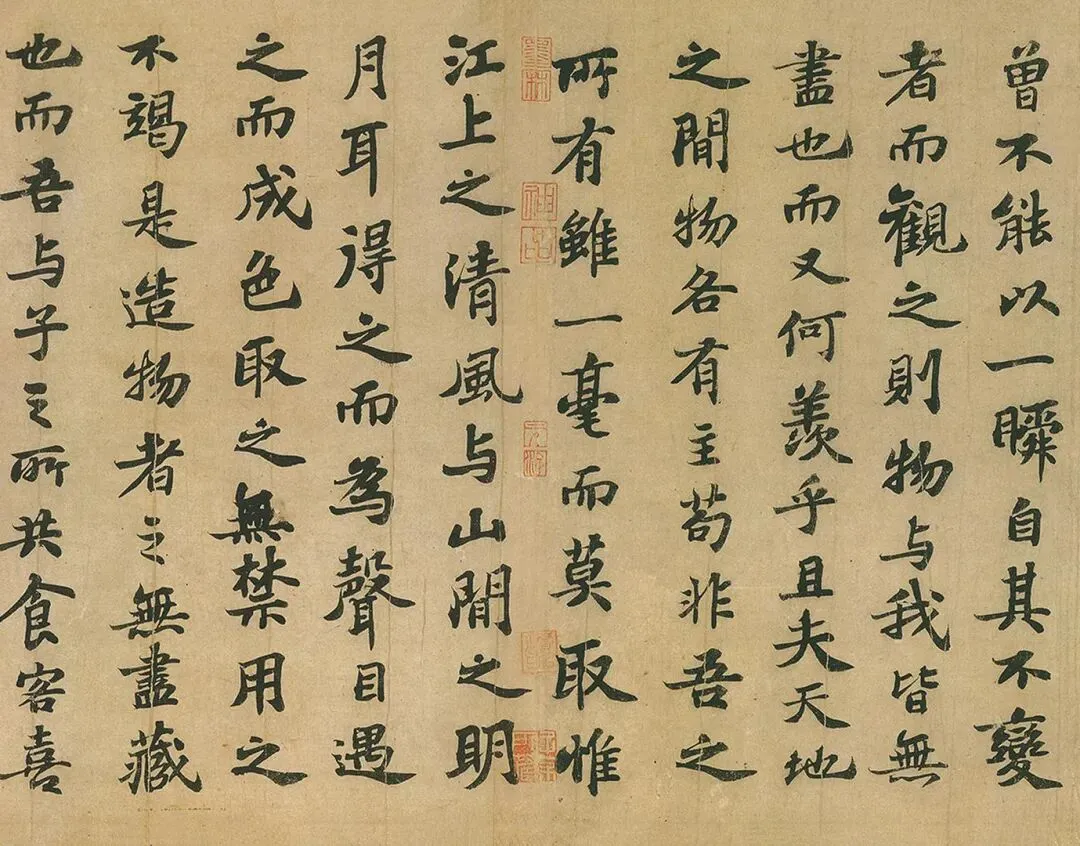 曾不能以一瞬自其不變
者而觀之則物与我皆無
盡也而又何羨乎且夫天地
之間物各有主苟非吾之
所有雖一毫而莫取惟
江上之清風与山間之明
月耳得之而為聲目遇
之而成色取之無禁用之
不竭是造物者之無盡藏
也而吾与子之所共食客喜